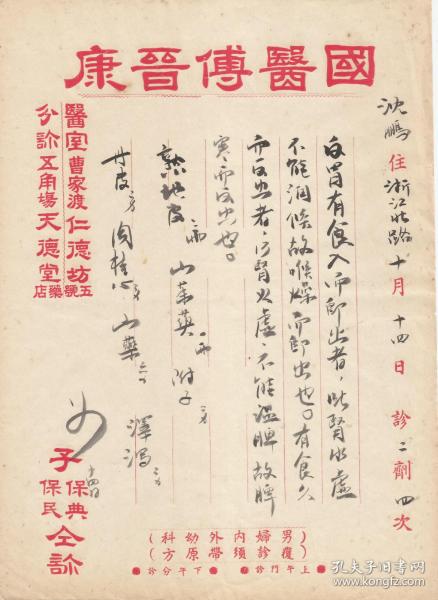 國醫傅晉康
沈鵬 住 浙江北路 十月十四日 診二劑 四次
反胃有食入而即出者，此腎水虛
不能潤喉故喉燥而即出也。有食久
而反出者，乃腎火虛，不能溫脾故脾
寒而反出也。
熟地 山茱萸 一兩 附子
丹皮 肉桂 山藥 澤瀉
醫室曹家渡仁德坊五號
分診五角場天德堂藥店
子保典保民仝診
十四日
（男婦內外幼科）
（覆診須帶原方）
上午門診 下午分診
孔夫子旧书网
book.kongfz.com